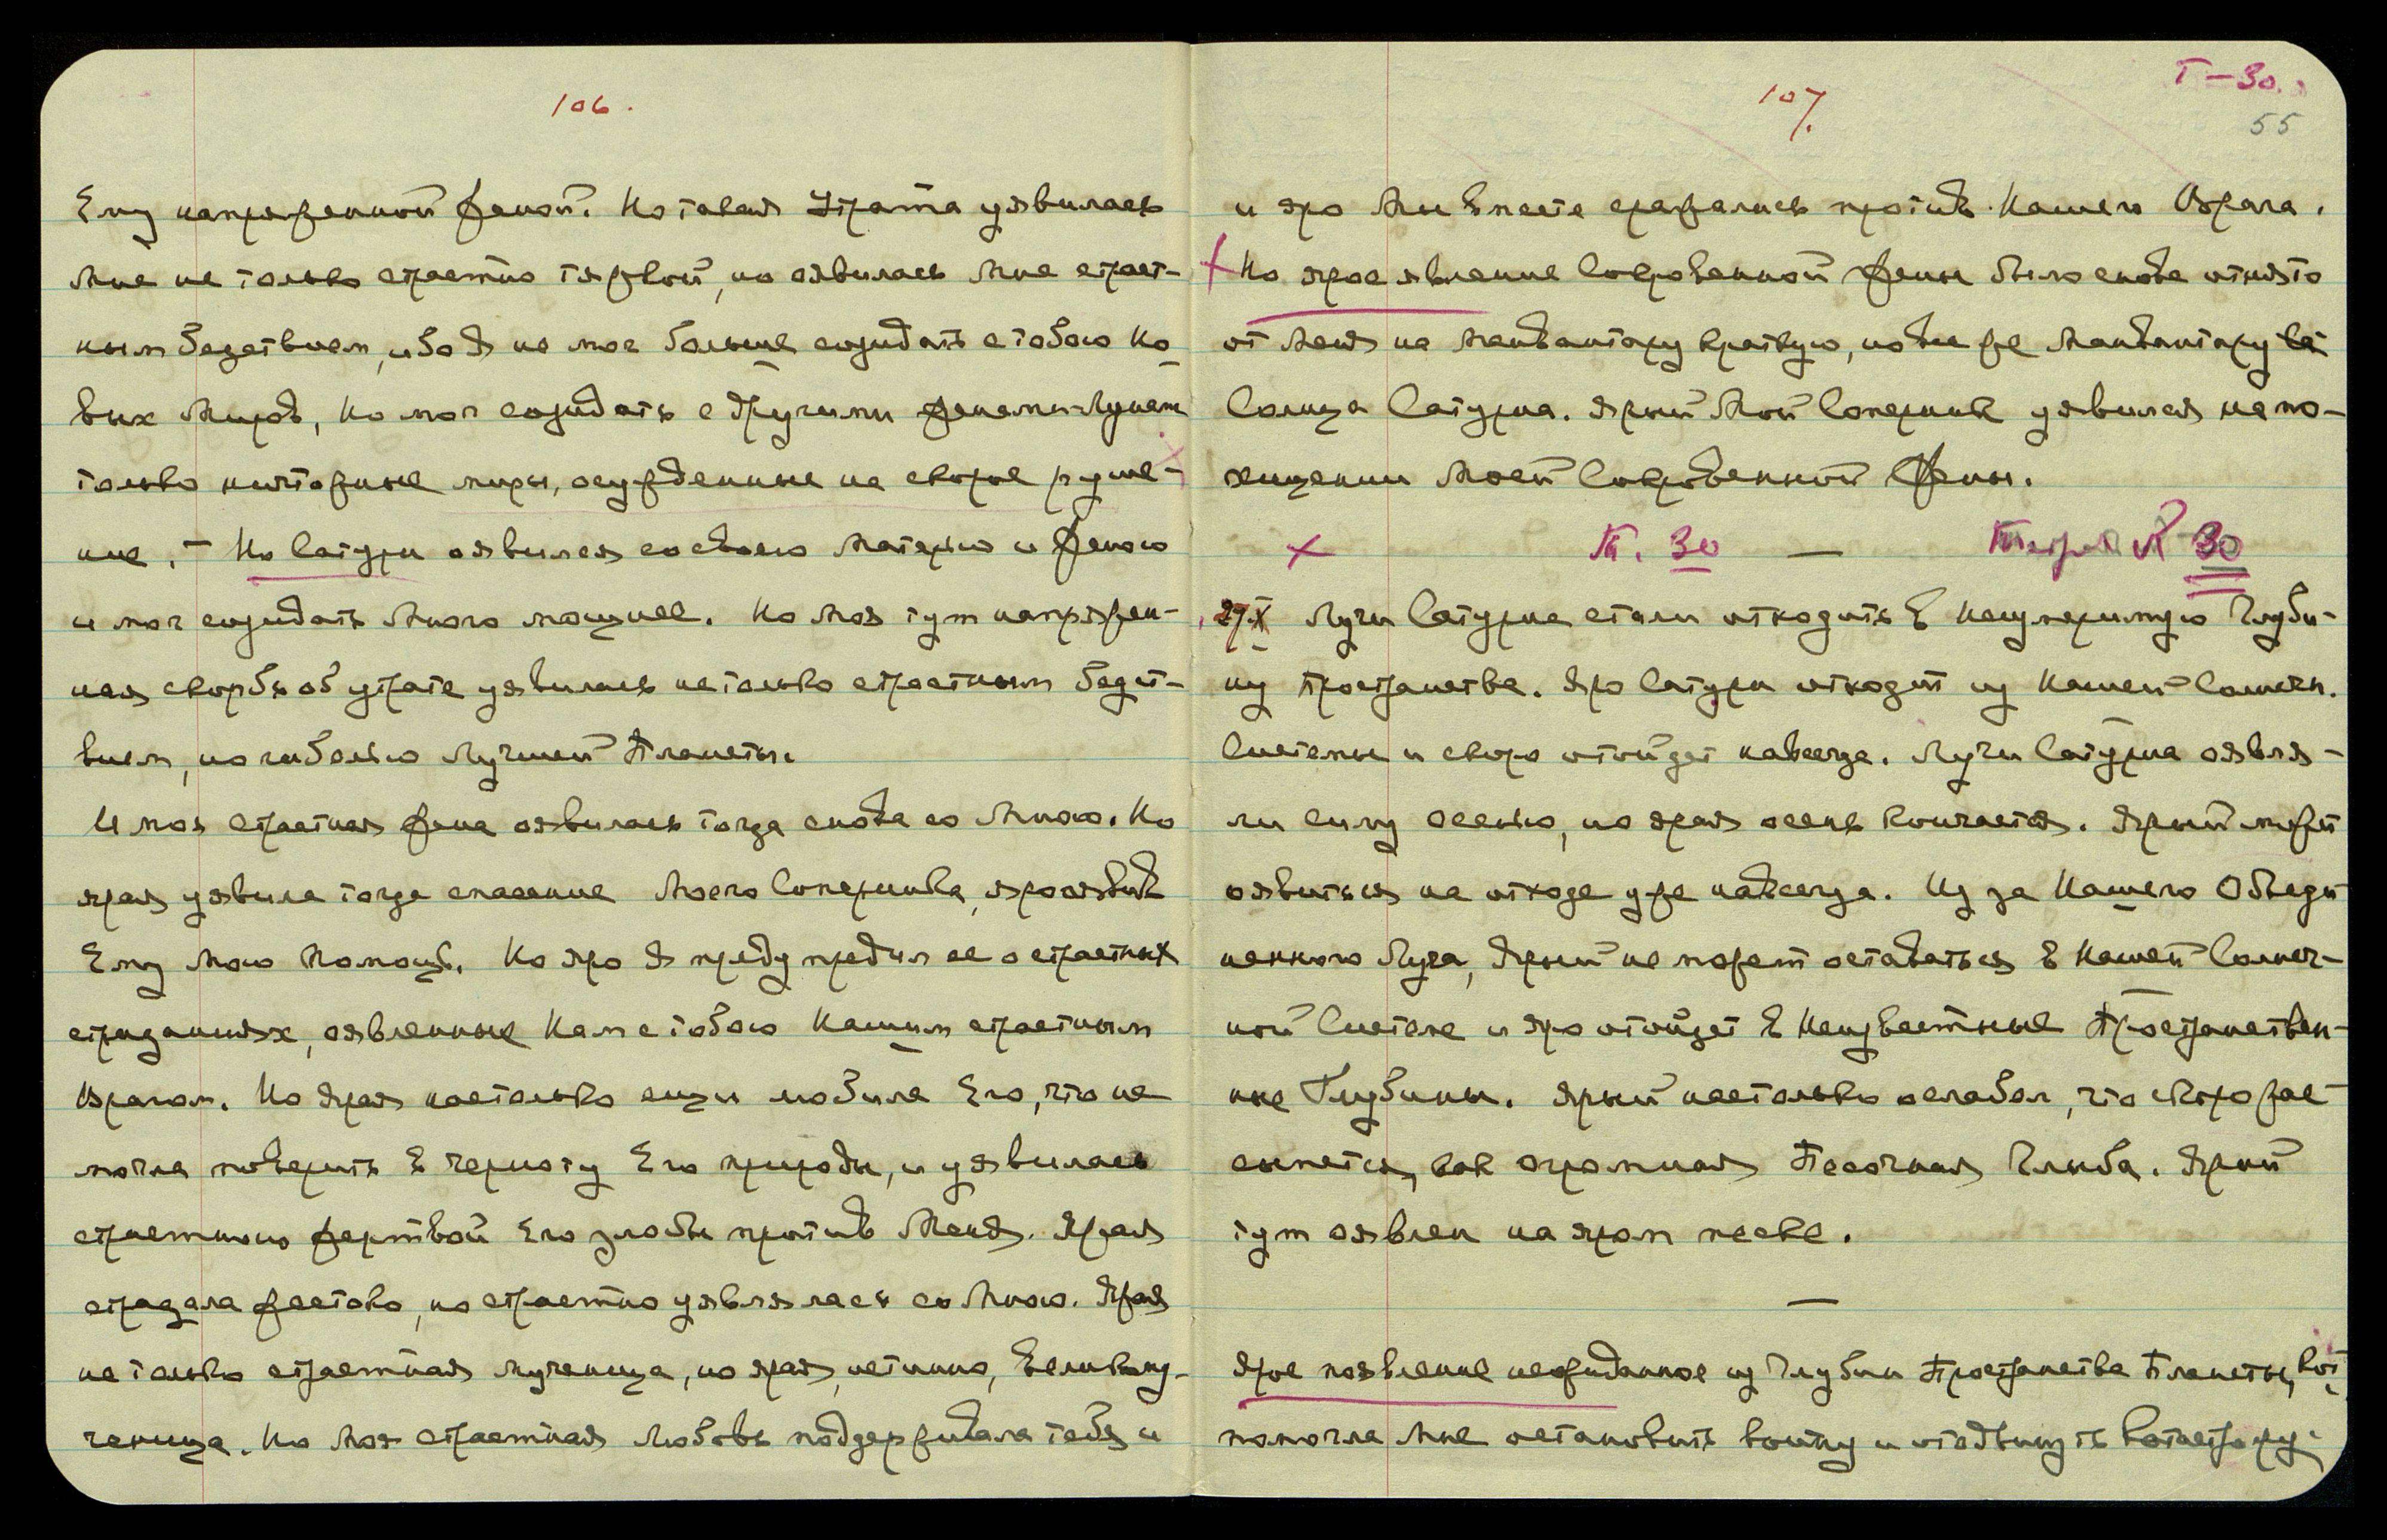 106.
Ему напряженной женой. Но такая Утрата уявилась
Мне не только страстно тяжкой, но оявилась Мне страст-
ным бедствием, ибо Я не мог больше созидать с тобою Но-
вых Миров, Но мог созидать с другими женами-Лунами
только ничтожные миры, осужденные на скорое руше-
ние. – Но Сатурн оявился со своею Матерью и Женою
и мог созидать Много мощнее. Но Моя тут напряжен-
ная скорбь об утрате уявилась не только страстным бедст-
вием, но гибелью Лучшей Планеты.
И моя страстная жена оявилась тогда снова со Мною. Но
ярая уявила тогда спасение Моего Соперника, яро оявив
Ему Мою Помощь. Но яро Я предупредил ее о страстных
страданиях, оявленные Нам с тобою Нашим страстным
Врагом. Но Ярая настолько еще любила Его, что не
могла поверить в черноту Его природы, и уявилась
страстною жертвой Его злобы против Меня. Ярая
страдала жестоко, но страстно уявлялась со Мною. Ярая
не только страстная мученица, но ярая, истинно, Великому-
ченица. Но Моя страстная Любовь поддерживала тебя и
107.
Т – 30.
55
и яро Мы вместе сражались против Нашего Врага.
Но ярое явление Сокровенной Жены было снова отнято
от Меня на Манвантару краткую, но все же Манвантару
Солнца Сатурна. Ярый Мой Соперник уявился на по-
хищении Моей Сокровенной Жены.
× Т. 30 — Тетрадь 30
27.X Лучи Сатурна стали отходить в Неизмеримую Глуби-
ну Пространства. Яро Сатурн отходит из Нашей Солнечн.
Системы и скоро отойдет навсегда. Лучи Сатурна оявля-
ли силу осенью, но ярая осень кончается. Ярый может
оявиться на отходе уже навсегда. Из за Нашего Объеди
ненного Луча, Ярый не может оставаться в Нашей Солнеч-
ной Системе и яро отойдет в Неизвестные Пространствен-
ные Глубины. Ярый настолько ослабел, что скоро рас-
сыпется, как огромная Песочная Глыба. Ярый
тут оявлен на яром песке.
—
Ярое появление неожиданное из Глубин Пространства Планеты, кот.
помогла Мне остановить войну и отодвинуть катастрофу.